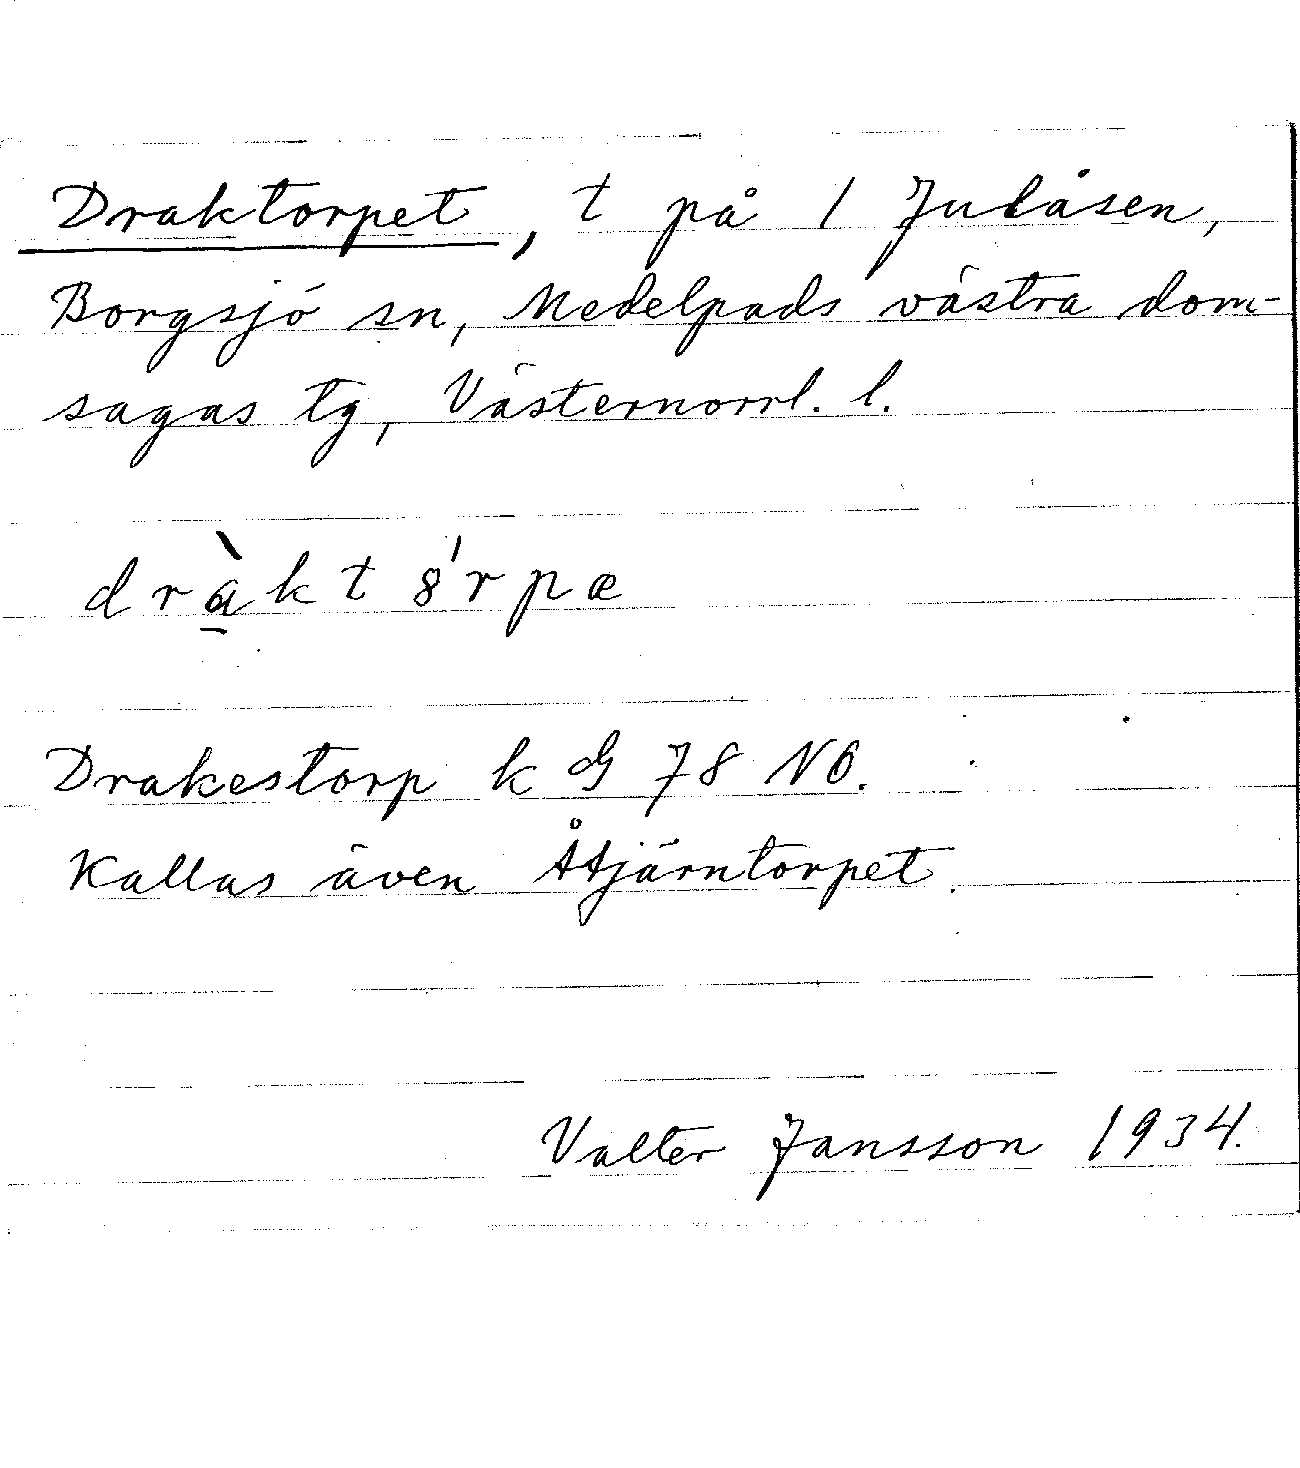 Draktorpet, t på 1 Julåsen,
Borgsjö sn, Medelpads västra dom-
sagas tg, Västernorrl. l.
dràkt8'rpæ
Drakestorp k G 78 NO.
Kallas även Åtjärntorpet.
Valter Jansson 1934.